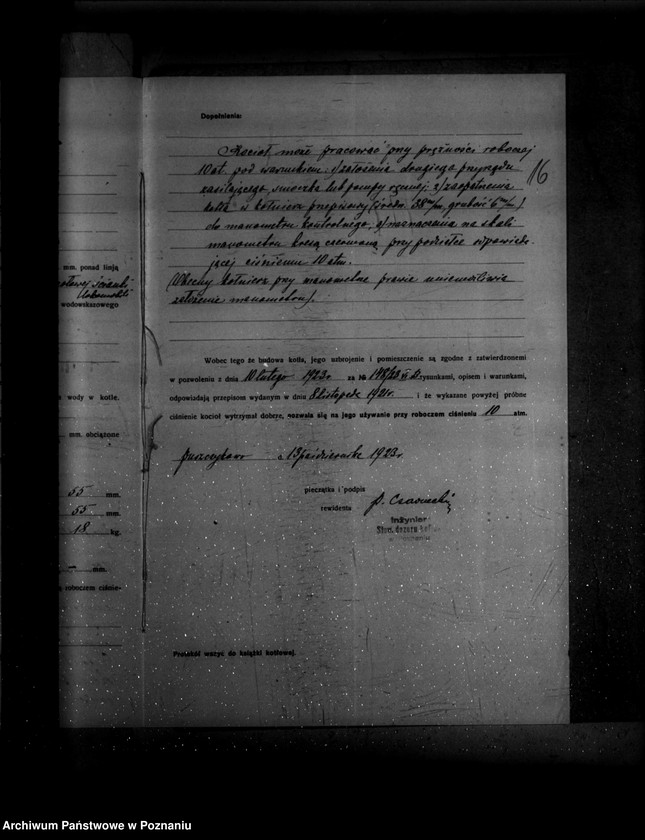 mm. ponad linją
wodowskazowego
wody w kotle.
mm. obciążone
55 mm.
55 mm.
18 kg.
— mm.
roboczem ciśnie-
Dopełnienia:
16
Kocioł może pracować przy prężności roboczej
10 at. pod warunkiem: 1/ założenia drugiego przyrządu
zasilającego, smoczka lub pompy ręcznej; 2/ zaopatrzenia
kotła w kołnierz przepisowy (średn. 38 m/m, grubość 6 m/m)
do manometru kontrolnego, 3/ naznaczenia na skali
manometru kreską czerwoną przy podziałce odpowied-
jącej ciśnieniu 10 atm.
(Obecny kołnierz przy manometrze prawie uniemożliwia
założenie manometru).
Wobec tego że budowa kotła, jego uzbrojenie i pomieszczenie są zgodne z zatwierdzonemi
w pozwoleniu z dnia 10 lutego 1923 r. za № 148/23 rysunkami, opisem i warunkami,
odpowiadają przepisom wydanym w dniu 8 listopada 1921 r. i że wykazane powyżej próbne
ciśnienie kocioł wytrzymał dobrze, zezwala się na jego używanie przy roboczem ciśnieniu 10 atm.
13 października 1923 r.
pieczątka i podpis
rewidenta
Inżynier
Stow. dozoru
Protokół wszyć do książki kotłowej.
Archiwum Państwowe w Poznaniu